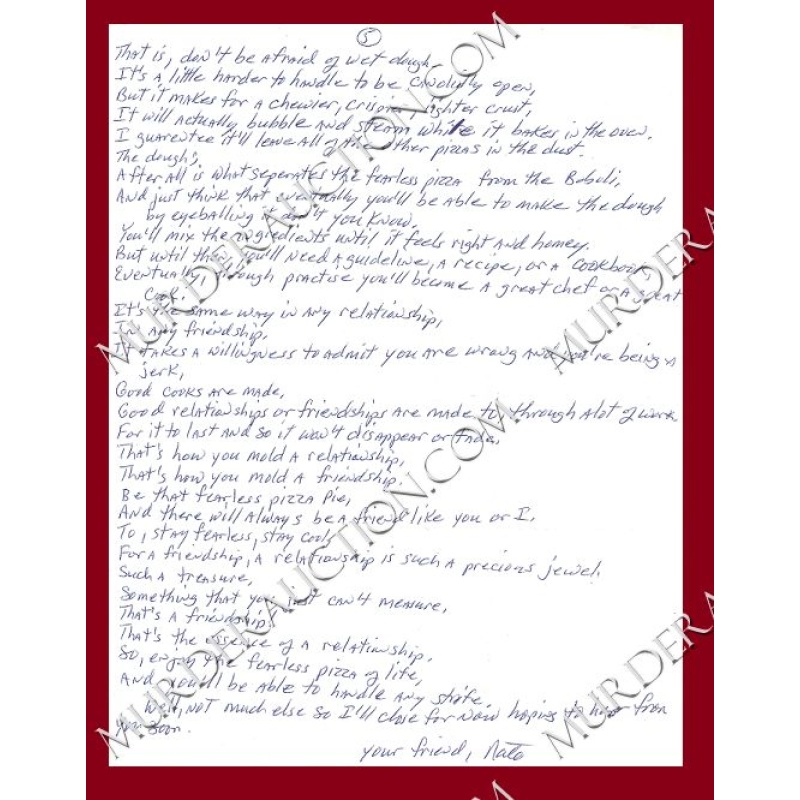 5
That is, don't be afraid of wet dough.
It's a little harder to handle to be candidly open,
But it makes for a chewier, crispier lighter crust,
It will actually bubble and steam while it bakes in the oven.
I guarentee it'll leave all of the other pizzas in the dust.
The dough,
After all is what seperates the fearless pizza from the Boboli,
And just think that eventually you'll be able to make the dough
by eyeballing it don't you know.
You'll mix the ingredients until it feels right and homey.
But until then you'll need a guideline, a recipe, or a cookbook,
Eventually, through practise you'll become a great chef or a great
cook.
It's the same way in any relationship,
In any friendship,
It takes a willingness to admit you are wrong and you're being a
jerk,
Good cooks are made,
Good relationships or friendships are made to, through alot of work.
For it to last and so it won't disappear or fade.
That's how you mold a relationship,
That's how you mold a friendship.
Be that fearless pizza pie,
And there will always be a friend like you or I.
To, stay fearless, stay cool
For a friendship, a relationship is such a precious jewel.
Such a treasure,
Something that you just can't measure,
That's a friendship.
That's the essence of a relationship.
So, enjoy the fearless pizza of life,
And you'll be able to handle any strife.
Well, not much else so I'll close for now hoping to hear from
you soon.
your friend,
MURDERAUCTION.COM
MURDERAUCTION.COM
MURDERA
MURDERA